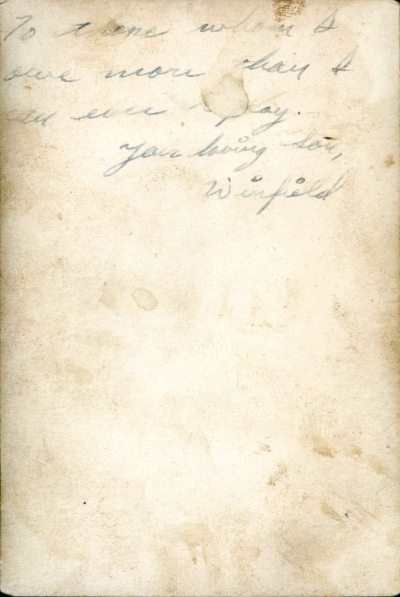 To those whom I
owe more than I
can ever repay.
Your loving son,
Winfield